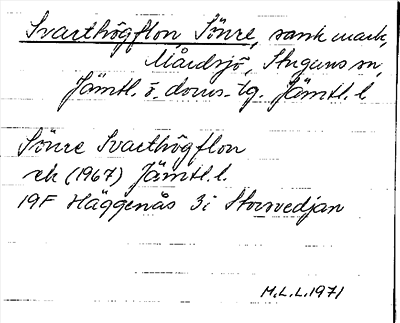 Svarthögflon, Södre, sank mark,
Mårdsjö, Stuguns sn,
Jämtl. ö. doms-lg. Jämtl. l
Södre Svarthögflon
ek (1967) Jämtl. l.
19F Häggenås 3i Storsvedjan
M.L.L. 1971